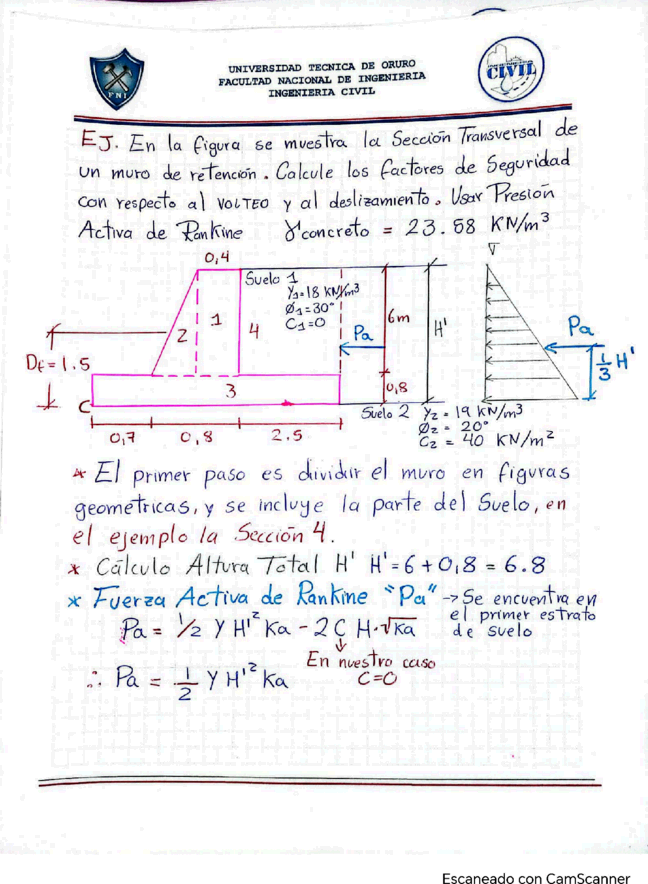 UNIVERSIDAD TECNICA DE ORURO
FACULTAD NACIONAL DE INGENIERIA
INGENIERIA CIVIL
FNI
CIVIL
EJ. En la figura se muestra la Sección Transversal de
un muro de retención. Calcule los factores de Seguridad
con respecto al VOLTEO y al deslizamiento. Usar Presión
Activa de Rankine γconcreto = 23.58 KN/m³
0,4
Suelo 1
γ₁=18 KN/m³
Ø₁=30°
C₁=0
1
2
3
4
Pa
6m
H'
0,8
Df = 1.5
C
0,7
0,8
2.5
Suelo 2 γ₂ = 19 KN/m³
Ø₂ = 20°
C₂ = 40 KN/m²
Pa
1/3 H'
* El primer paso es dividir el muro en figuras
geometricas, y se incluye la parte del Suelo, en
el ejemplo la Sección 4.
* Cálculo Altura Total H' H'= 6 + 0,8 = 6.8
* Fuerza Activa de Rankine "Pa" -> Se encuentra en
el primer estrato
de suelo
Pa = 1/2 γ H'² Ka - 2 C H·√Ka
↓
En nuestro caso
C=0
∴ Pa = 1/2 γ H'² Ka
Escaneado con CamScanner